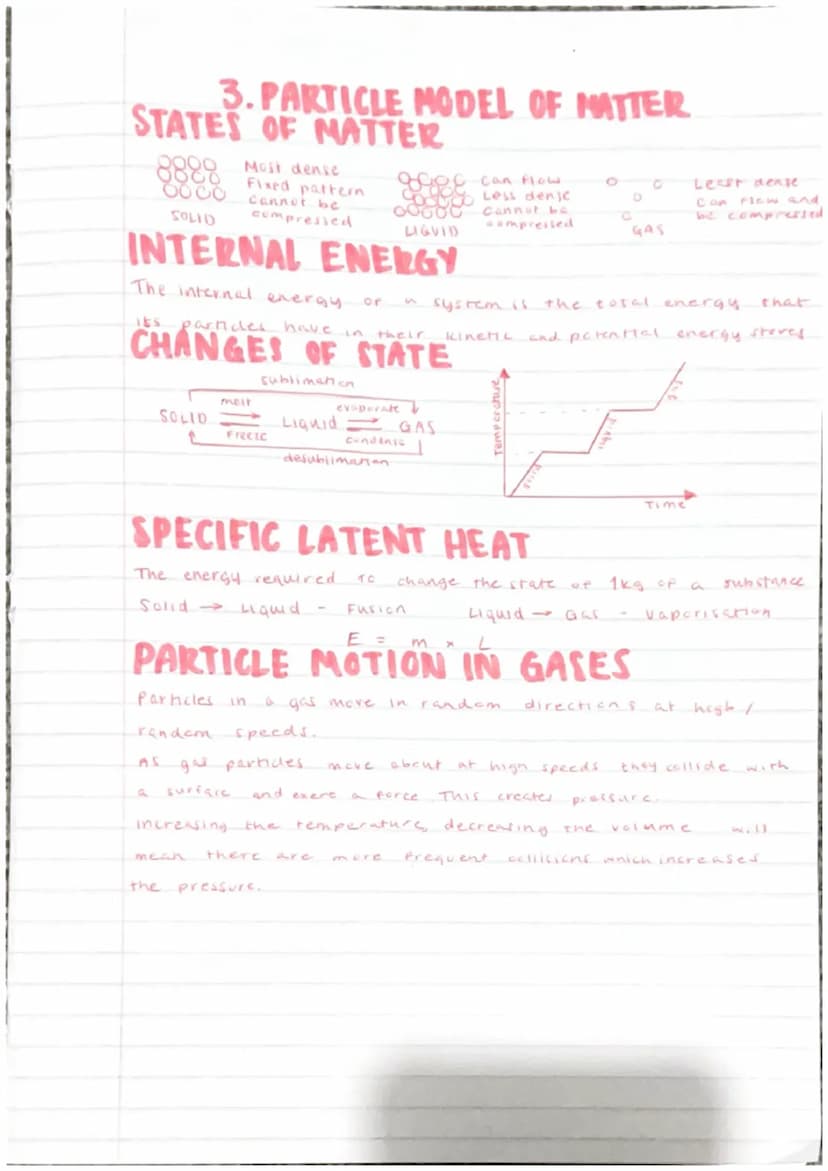 3. PARTICLE MODEL OF MATTER
STATES OF MATTER
Most dense
Fixed pattern
cannot be
compressed
SOLID
can flow
Less dense
cannot be
compressed
LIQUID
Least dense
can flow and
be compressed
GAS
INTERNAL ENERGY
The internal energy of a system is the total energy that
its particles have in their kinetic and potential energy stores
CHANGES OF STATE
sublimation
melt
evaporate
SOLID Liquid GAS
Freeze
condense
desublimation
Temperature
solid
liquid
gas
Time
SPECIFIC LATENT HEAT
The energy required to change the state of 1kg of a substance
Solid → Liquid - Fusion Liquid → Gas - Vaporisation
E = m × L
PARTICLE MOTION IN GASES
Particles in a gas move in random directions at high /
random speeds.
As gas particles move about at high speeds they collide with
a surface and exert a force. This creates pressure.
increasing the temperature, decreasing the volume will
mean there are more frequent collisions which increases
the pressure.